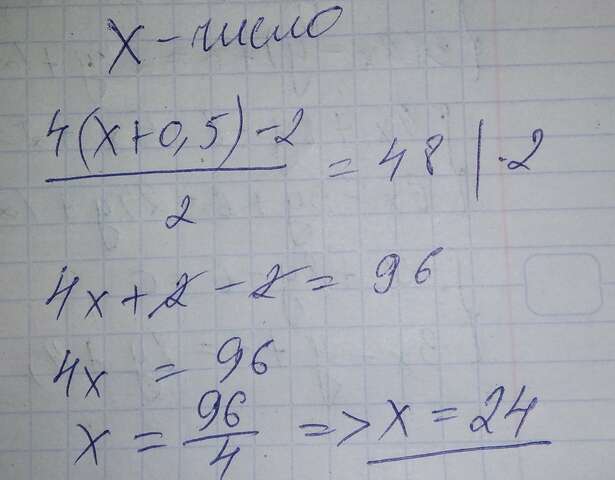 x - число
4(x+0,5)-2
/2 = 48 | ·2
4x+2-2= 96
4x = 96
x = 96/4 => x = 24